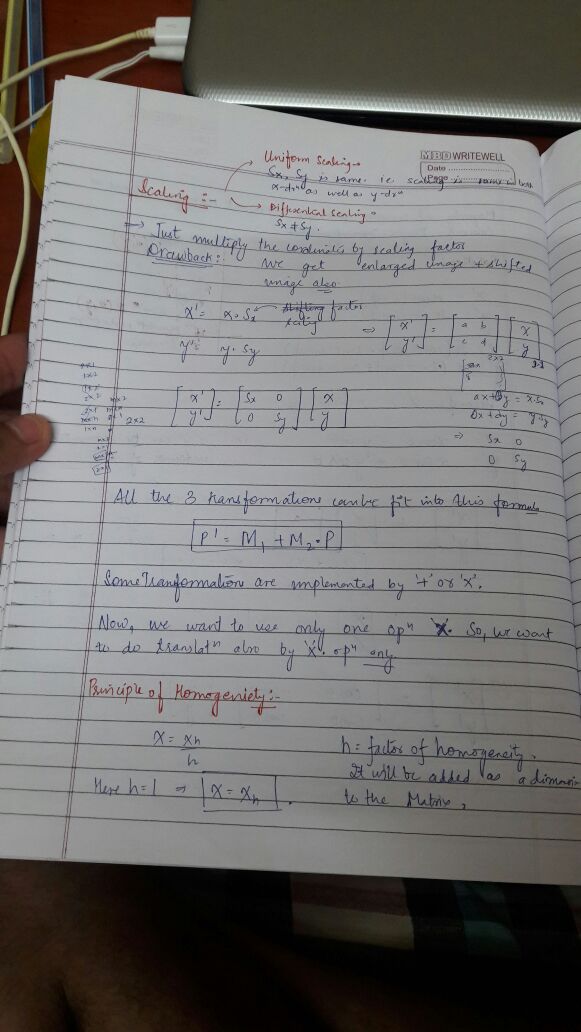 Uniform Scaling →
MBD WRITEWELL
Date
Page
Sx, Sy is same. i.e. scaling is same in both
x-drⁿ as well as y-drⁿ
Scaling :-
→ Differential Scaling →
Sx ≠ Sy.
→ Just multiply the coordinates by scaling factor
Drawback:- We get enlarged image + shifted
image also
x' = x. Sx ← factor
y' = y. Sy
⇒ [x' y'] = [a b c d] [x y]
2x2
[x' y'] = [Sx 0 0 Sy] [x y]
2x2
= x.Sx
= y.Sy
⇒ Sx 0
0 Sy
All the 3 transformations can be fit into this formula
P' = M₁ + M₂ • P
Some Tranformation are implemented by '+' or 'x'.
Now, we want to use only one opⁿ 'x'. So, we want
to do translatⁿ also by 'x' opⁿ only
Principle of Homogeniety:-
x = xh / h
h = factor of homogeneity.
It will be added as a dimension
Here h=1 ⇒ x = xh .
to the Matrix.